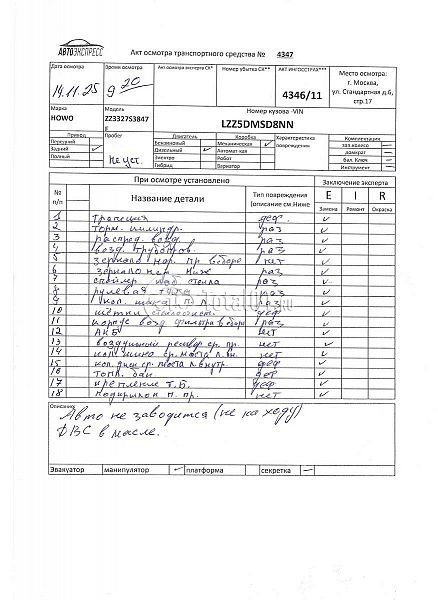 АВТОЭКСПРЕСС
Акт осмотра транспортного средства № 4347
Дата осмотра
14.11.25
Время осмотра
9 20
Акт осмотра эксперта СК*
Номер убытка СК**
АКТ ИНГОССТРАХ***
4346/11
Место осмотра:
г. Москва,
ул. Стандартная д.6,
стр.17
Марка
HOWO
Модель
ZZ3327S3847
Номер кузова -VIN
LZZ5DMSD8NN
Привод
Передний
Задний ✓
Полный
Пробег
Не уст.
Двигатель
Бензиновый
Дизельный ✓
Электро
Гибрид
Коробка
Механическая ✓
Автомат-кая
Робот
Вариатор
Характеристика
повреждения
Комплектация
зап.колесо —
домкрат —
бал. Ключ —
Инструмент —
№
п/п
При осмотре установлено
Название детали
Тип повреждения
(описание см.Ниже
Заключение эксперта
E I R
Замена Ремонт Окраска
1 Трапеция деф ✓
2 Торм. цилиндр. раз ✓
3 распред. возд. раз ✓
4 возд. трубопров. раз ✓
5 зеркало нар. пр. в сборе нет ✓
6 зеркало ниж раз ✓
7 спойлер над стекла раз ✓
8 рулевая тяга раз ✓
9 кол. шина п л. раз ✓
10 щётки стеклоочист. деф ✓
11 корпус возд фильтра в сборе раз ✓
12 АКБ нет ✓
13 воздушный ресивер ср. пр. нет ✓
14 кол шина ср. моста л. вн. нет ✓
15 кол. диск ср. моста л. внутр. деф ✓
16 Топл. бак деф ✓
17 крепление Т.Б. деф ✓
18 подкрылок п. пр. нет ✓
Описание:
Авто не заводится (не на ходу)
ДВС в масле.
Эвакуатор манипулятор ✓ платформа секретка —